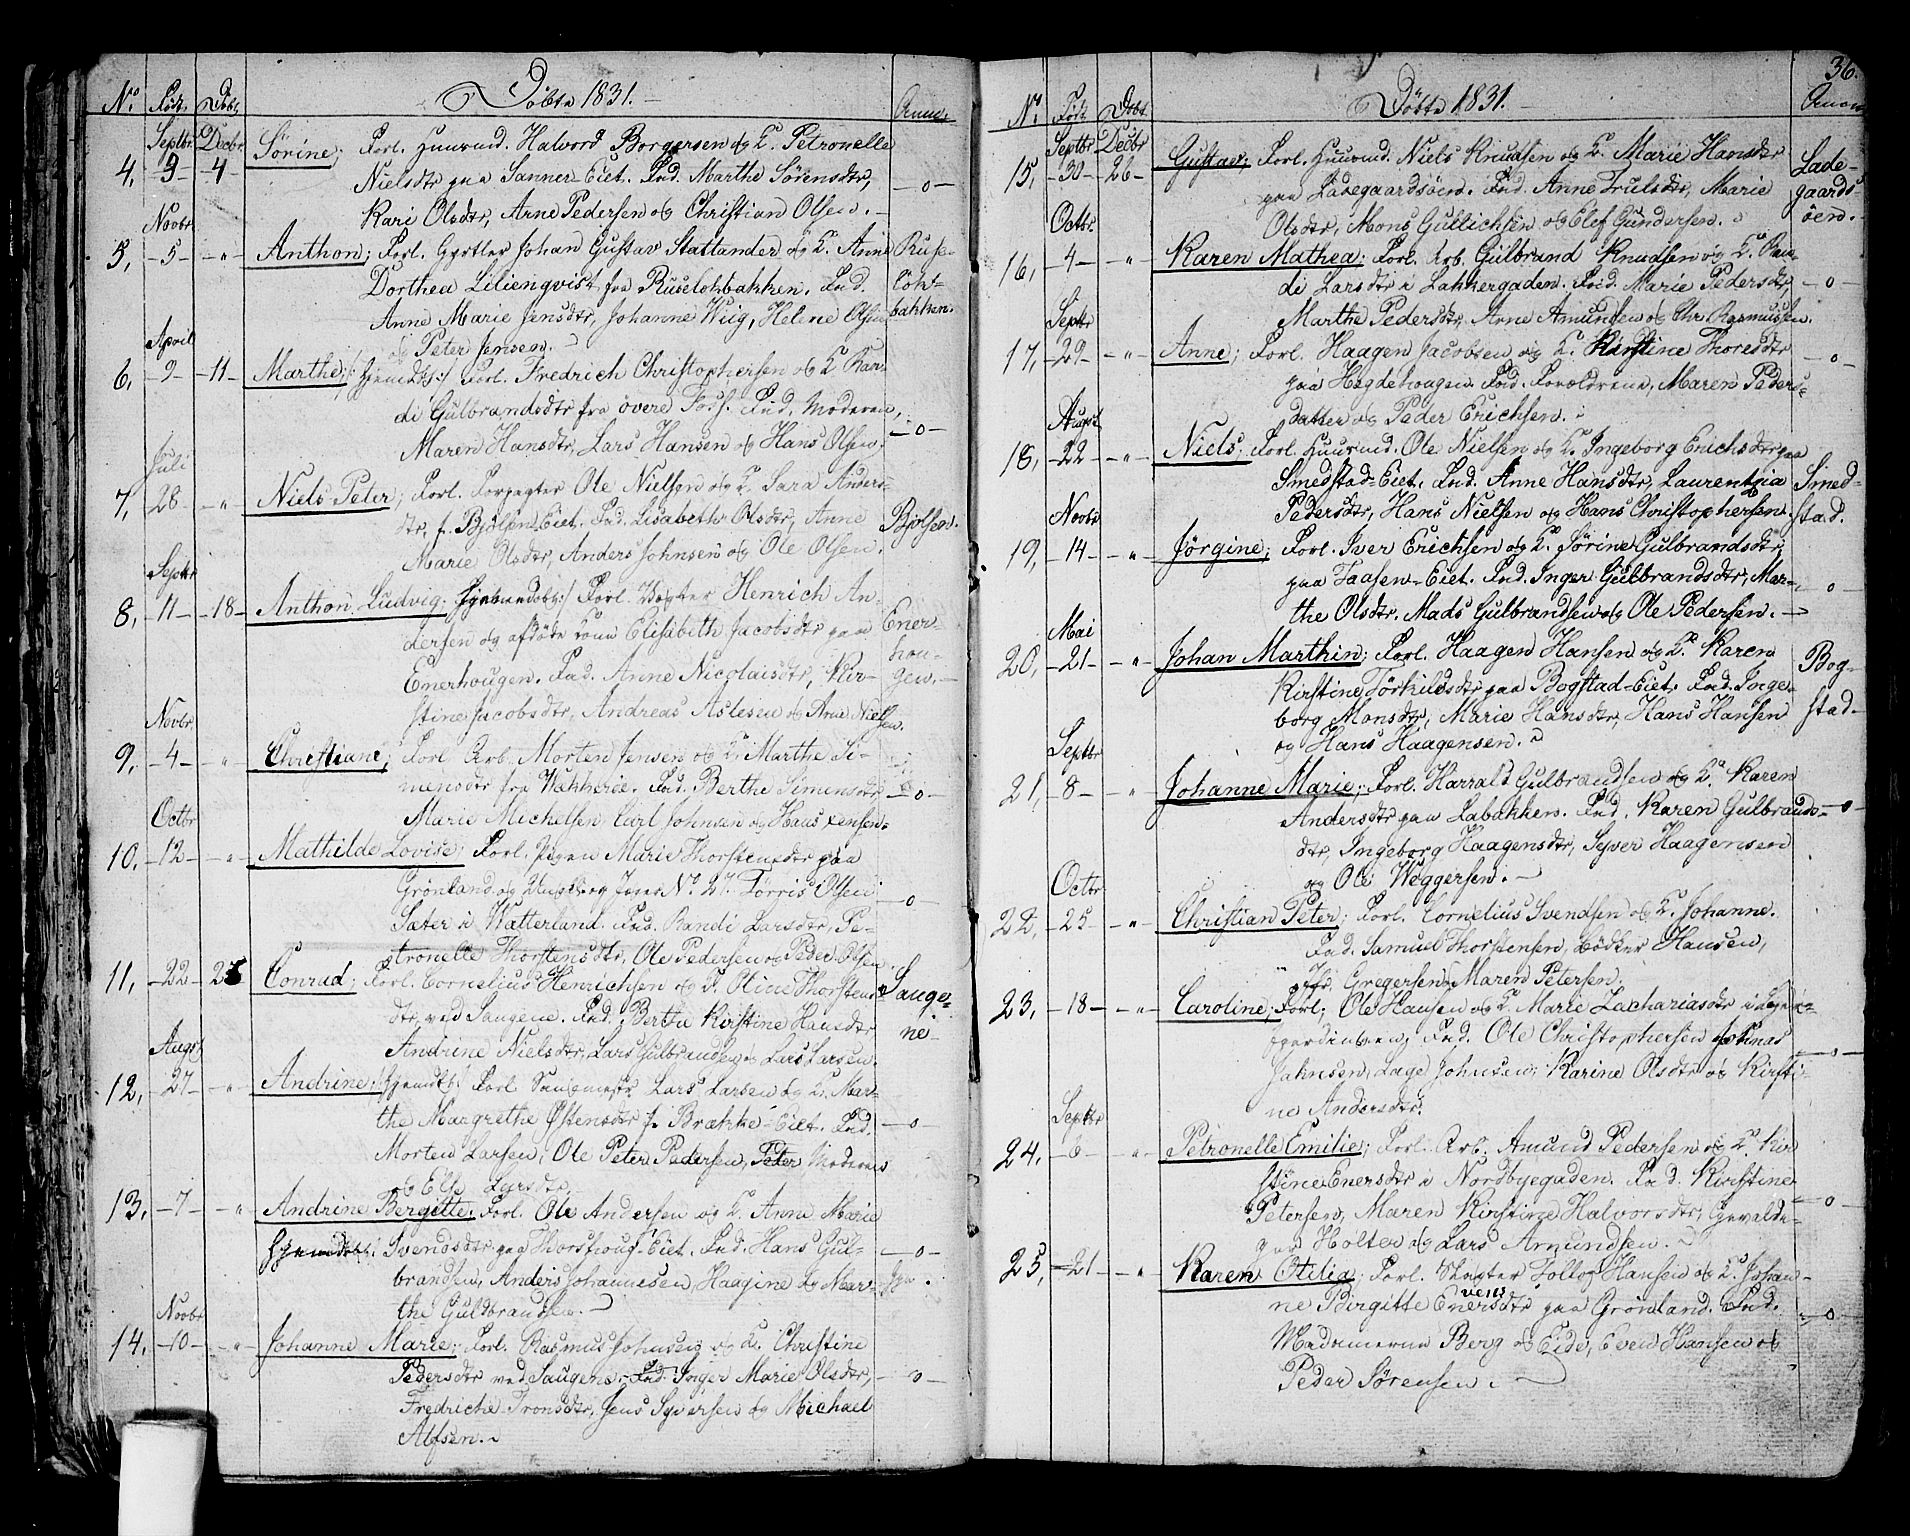 Døbte 1831.
No. Født. Døbt. Anm.
Septbr. Decbr.
4, 9 4 Sørine; Forl. Huusmd. Halvord Borgersen og K. Petronelle
Nielsdtr paa Sanner-Eiet. Fad. Marthe Sørensdtr, -o-
Kari Olsdtr, Arne Pedersen og Christian Olsen.
Novbr
5, 5 " Anthon; Forl. Gjørtler Johan Gustav Stattander og K. Anne Ruse-
Dorthea Lilienqvist fra Ruseløkbakken. Fad. løk-
Anne Marie Jensdtr, Johanne Wiig, Helene Olsen bakken.
og Peter Jensen.
April
6, 9 11 Marthe; /: hjemdbt :/ Forl. Fredrich Christophersen og K. Ran-
di Gulbrandsdtr fra øvere Foss. Fad. Moderen,
Maren Hansdtr, Lars Hansen og Hans Olsen. -o-
Juli
7, 28 " Niels Peter; Forl. Forpagter Ole Nielsen og K. Sara Anders-
dtr, f. Bjølsen Eiet. Fad. Lisabeth Olsdtr, Anne Bjølsen.
Marie Olsdtr, Anders Johnsen og Ole Olsen.
Septbr
8, 11 18 Anthon Ludvig; hjemdøbt :/ Forl. Vægter Henrich An-
dersen og afdøde Kone Elisabeth Jacobsdtr paa Ener-
Enerhougen. Fad. Anne Nicolaisdtr, Kir- hou-
stine Jacobsdtr, Andreas Aslesen og Arne Nielsen. gen.
Novbr
9, 4 " Christiane; Forl. Arb. Morten Jensen og K. Marthe Si-
mensdtr fra Wakkerøe. Fad. Berthe Simensdtr, -o-
Marie Michelsen, Carl Johnsen og Hans Jensen.
Octbr
10, 12 " Mathilde Lovise; Forl. Pigen Marie Thorstensdtr paa
Grønland og Ungk. og Jæger No. 27 Torris Olsen
Sæter i Watterland. Fad. Randi Larsdtr, Pe- -o-
tronelle Thorstensdtr, Ole Pedersen og Peder Olsen.
11, 22 26 Conrad; Forl. Cornelius Henrichsen og K. Oline Thorstens- Sauge-
dtr ved Saugene. Fad. Bertha Kirstine Hansdtr ne-
Andrine Nielsdtr, Lars Gulbrandsen og Lars Larsen.
Augst
12, 27 " Andrine; /: hjemdbt :/ Forl. Saugmestr Lars Larsen og K. Mar-
the Margrethe Østensdtr f. Brække-Eiet. Fad. -o-
Morten Larsen, Ole Peter Pedersen, Peter Moderen
og Else Larsdtr.
13, 7 " Andrine Bergitte; Forl. Ole Andersen og K. Anne Marie
hjemdøbt Svendsdtr paa Thorshoug-Eiet. Fad. Hans Gul- -o-
brandsen, Anders Johannesen, Haagine og Mar-
the Guldbrandsen.
Novbr
14, 10 " Johanne Marie; Forl. Rasmus Johnsen og K. Christine
Pedersdtr ved Saugene. Fad. Inger Marie Olsdtr, -o-
Fredriche Tronsdtr, Jens Syversen og Michael
Alfsen.
36.
Døbte 1831.
No. Født. Døbt. Anm.
Septbr Decbr
15, 30 26 Gustav; Forl. Huusmd. Niels Knudsen og K. Marie Hansdtr Lade-
paa Ladegaardsøen. Fad. Anne Trulsdtr, Marie gaards
Olsdtr, Mons Gullichsen og Elef Gundersen. øen.
Octbr
16, 4 " Karen Mathea; Forl. Arb. Gulbrand Knudsen og K. Ran-
di Larsdtr i Lakkergaden. Fad. Marie Pedersdtr, -o-
Marthe Pedersdtr, Arne Amundsen og Chr. Rasmussen.
Septbr
17, 29 " Anne; Forl. Haagen Jacobsen og K. Kirstine Thoresdtr -o-
paa Hægdehougen. Fad. Forældrene, Maren Peders-
datter og Peder Erichsen.
Augst
18, 22 " Niels; Forl. Huusmd. Ole Nielsen og K. Ingeborg Erichsdtr paa
Smedstad-Eiet. Fad. Anne Hansdtr, Laurentzia Smed-
Pedersdtr, Hans Nielsen og Hans Christophersen. stad.
Novbr
19, 14 " Jørgine; Forl. Iver Erichsen og K. Sørine Gulbrandsdtr,
paa Taasen-Eiet. Fad. Inger Gulbrandsdtr, Mar- -o-
the Olsdtr, Mads Gulbrandsen og Ole Pedersen.
Mai
20, 21 " Johan Marthin; Forl. Haagen Hansen og K. Karen Bog-
Kirstine Torkildsdtr paa Bogstad-Eiet. Fad. Inge-
borg Monsdtr, Marie Hansdtr, Hans Hansen stad-
og Hans Haagensen.
Septbr
21, 8 " Johanne Marie; Forl. Harrald Gulbrandsen og K. Karen
Andersdtr paa Labakken. Fad. Karen Gulbrands- -o-
dtr, Ingeborg Haagensdtr, Syver Haagensen
og Ole Weggersen.
Octbr
22, 25 " Christian Peter; Forl. Cornelius Svendsen og K. Johanne.
Fad. Samuel Thorstensen, Bødker Hansen,
Gregersen, Maren Petersen.
23, 18 " Caroline; Forl. Ole Hansen og K. Marie Zachariasdtr i
Fad. Ole Christophersen, Jonas -o-
Jahnsen, Lage Johnsen, Karine Olsdtr og Kirsti-
ne Andersdtr.
Septbr
24, 6 " Petronelle Emilie; Forl. Arb. Amund Pedersen og K. Kir
stine Enersdtr i Nordbyegaden. Fad. Kirstine
Petersen, Maren Kirstine Halvorsdtr, -o-
Holter og Lars Amundsen.
25, 21 " Karen Otilia; Forl. Vægter Tollof Hansen og K. Johan-
ne Birgitte Enersdtr paa Grønland. Fad.
Madamerne Berg og Eide, Even Hansen og -o-
Peder Sørensen.